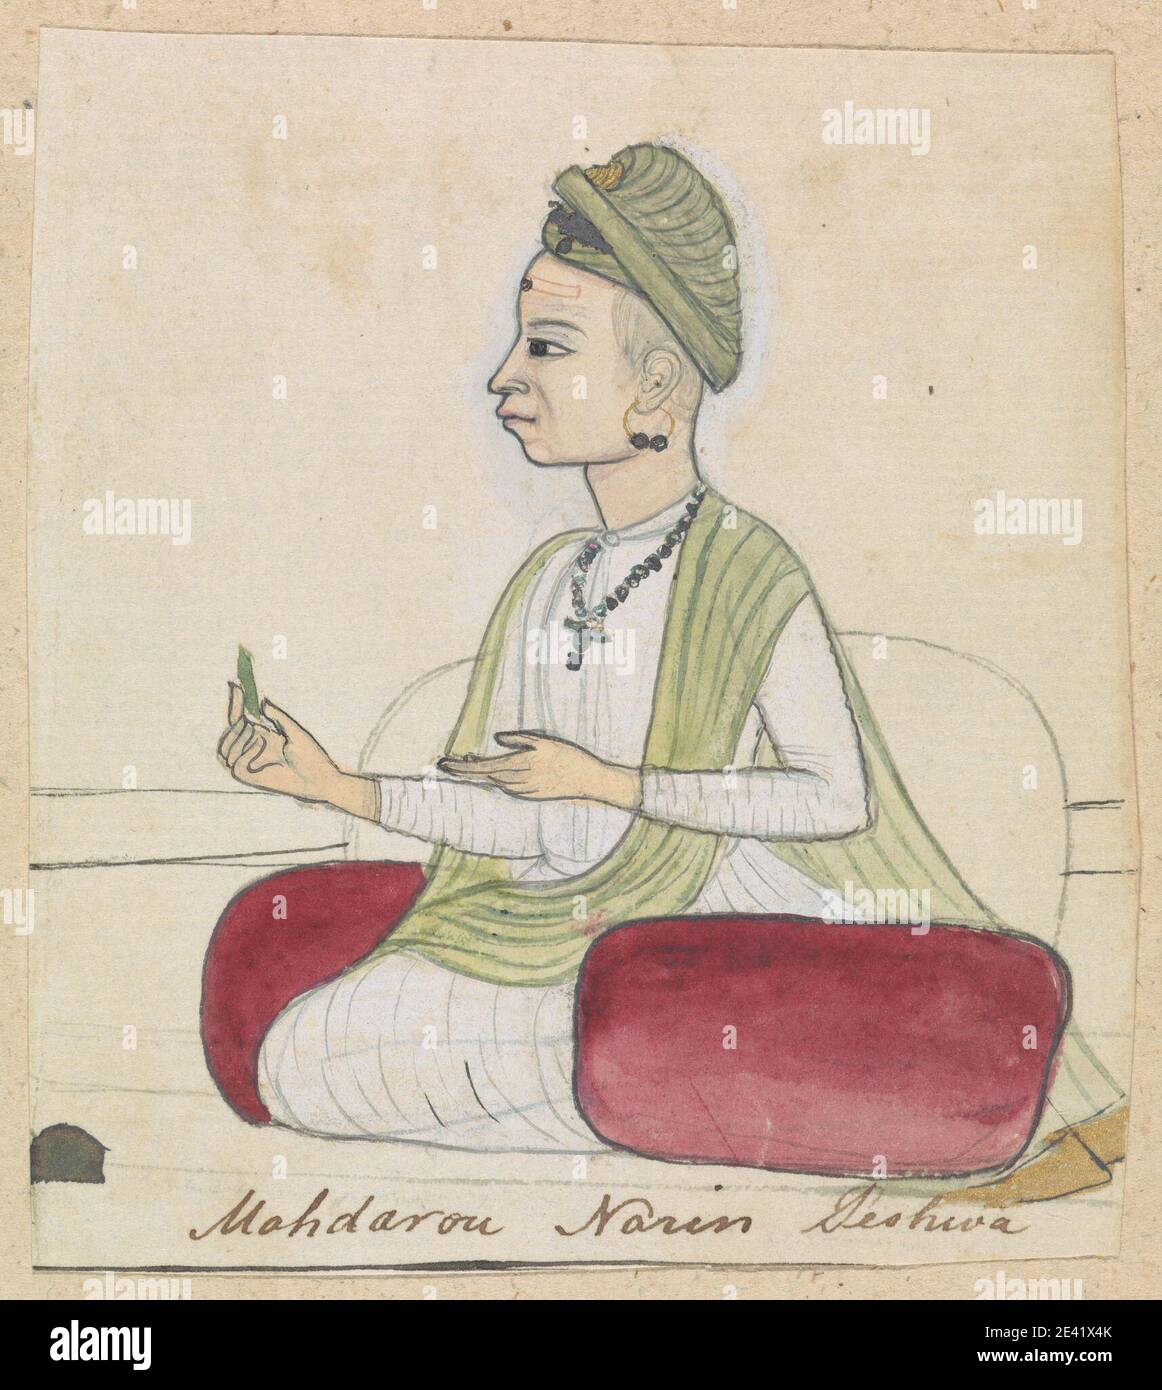 Mahdarou Narin Peshwa
alamy
Image ID: 2E41X4K
www.alamy.com